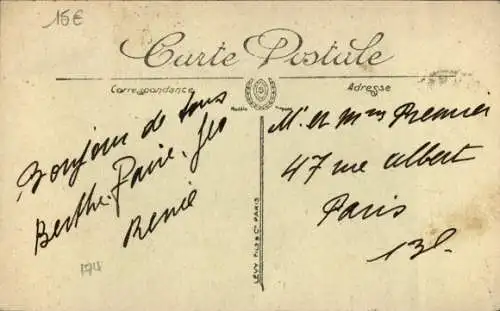 15€
Carte Postale
Correspondance
Adresse
Bonjour de tous
Berthe.
René
Mr et Mme Premier
47 rue Albert
Paris
13e.
LEVY FILS & Cie PARIS
174